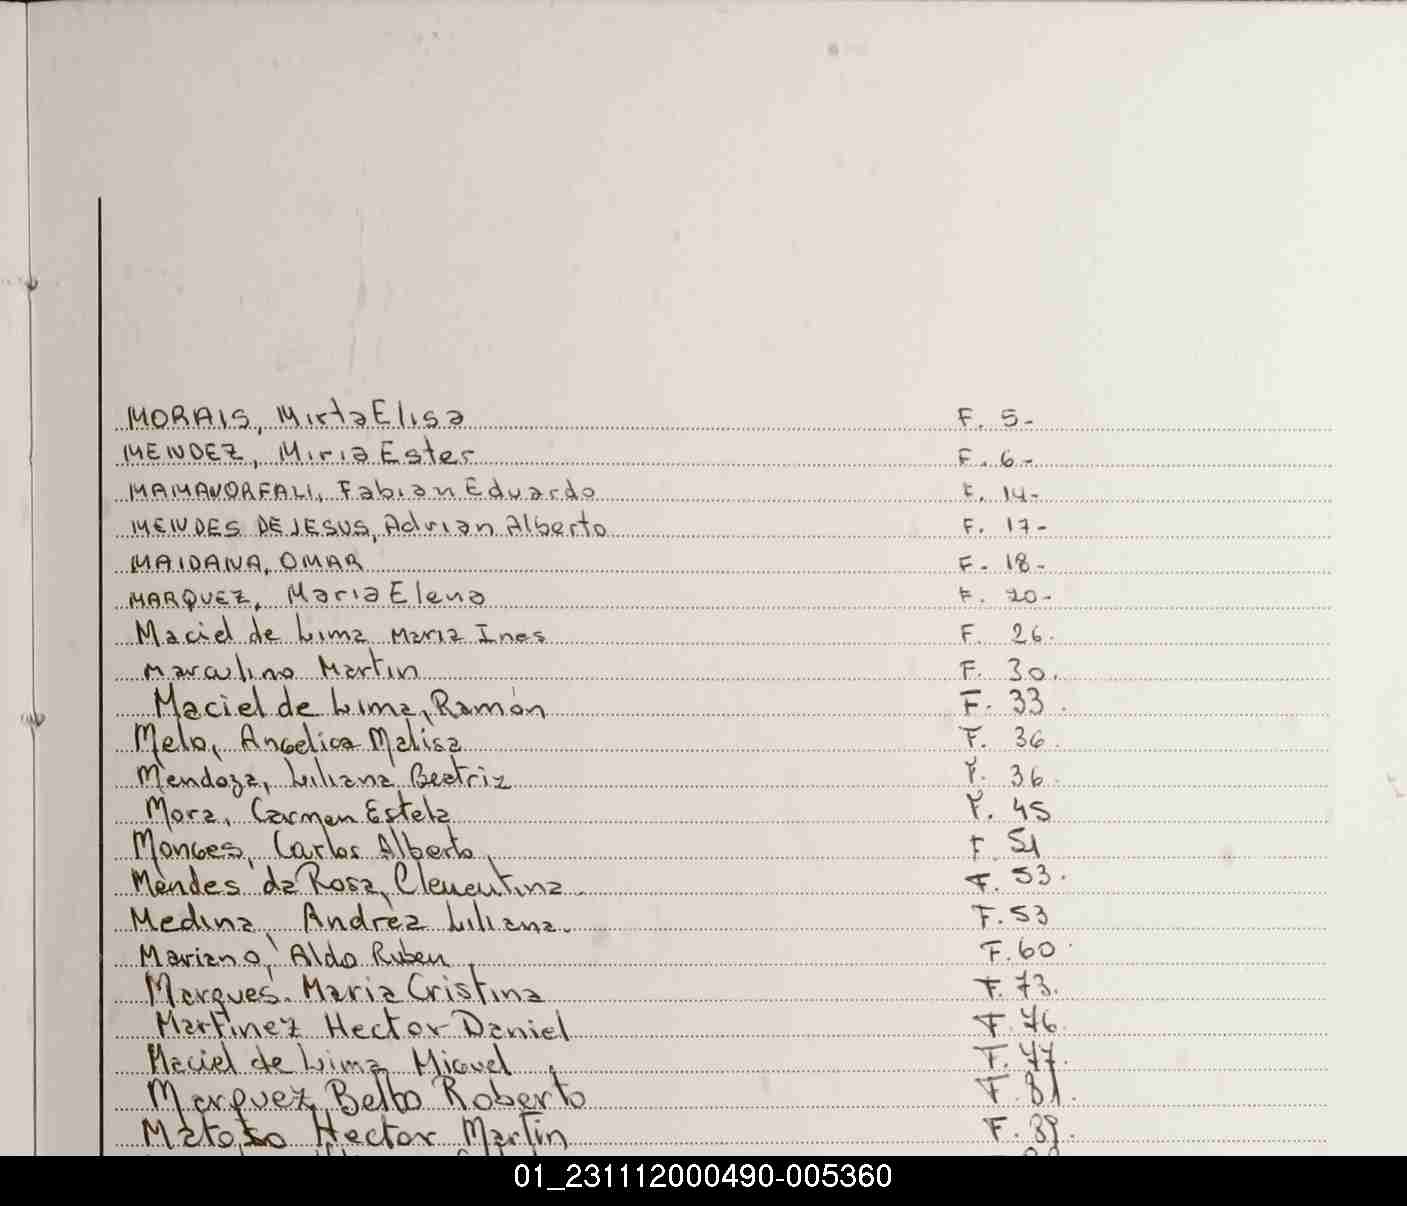 MORAIS, Mirta Elisa F. 5-
MENDEZ, Miria Ester F. 6-
MAMANORFALI, Fabian Eduardo F. 14-
MENDES DE JESUS, Adrian Alberto F. 17-
MAIDANA, OMAR F. 18-
MARQUEZ, Maria Elena F. 20-
Maciel de Lima Maria Ines F. 26.
Marculino Martin F. 30.
Maciel de Lima, Ramón F. 33.
Melo, Angelica Melisa F. 36.
Mendoza, Liliana Beatriz F. 36.
Mora, Carmen Estela F. 45
Monges, Carlos Alberto, F. 51
Mendes da Rosa, Clementina. F. 53.
Medina, Andrea Liliana. F. 53
Mariano, Aldo Ruben, F. 60.
Marques. Maria Cristina F. 73.
Martinez Hector Daniel F. 76.
Maciel de Lima, Miguel, F. 77.
Marquez, Roberto F. 81.
Hector Martin F. 89.
01_231112000490-005360